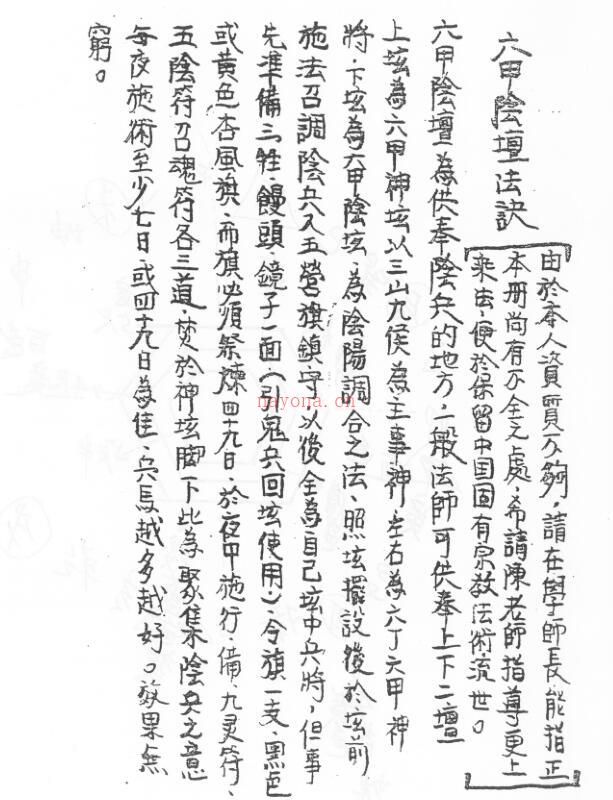 六甲陰壇法訣
由於本人資質不夠，請在學師長能指正
本册尚有不全之處，希請陳老師指導更上
來由，便於保留中国固有宗教法術流世。
六甲陰壇，為供奉陰兵的地方，一般法師可供奉上下二壇
上垓為六甲神垓以三山九侯為主事神，左右為六丁六甲神
將，下垓為六甲陰垓，為陰陽調合之法，照垓擺設後於垓前
施法召調陰兵入五營旗鎮守，以後全為自己垓中兵將，但事
先準備三牲、饅頭、鏡子一面，(引鬼兵回垓使用)，令旗一支、黑色
或黃色杏風旗，而旗必須祭煉四十九日，於夜中施行，備九灵符、
五陰符召魂符各三道，焚於神垓脚下此為聚集陰兵之意
每夜施術至少七日，或四十九日為佳，兵馬越多越好。效果無
窮。
nayona.cn